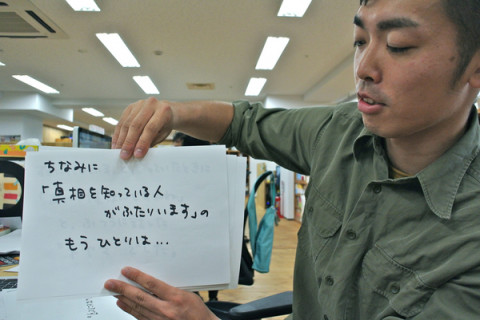 ちなみに
「真相を知っている人
がふたりいます」の
もうひとりは…